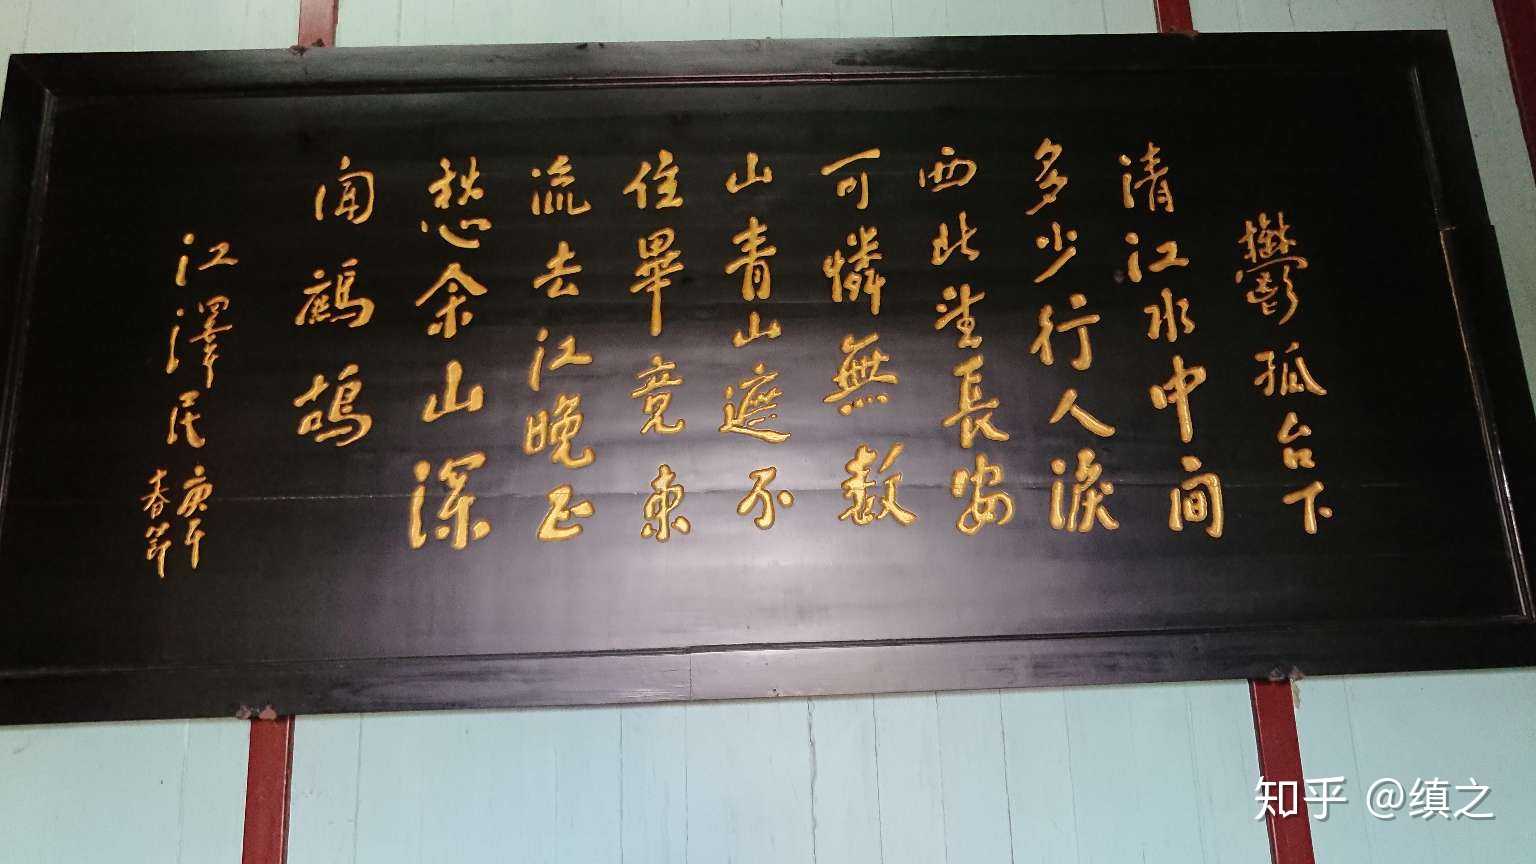 鬱孤台下
清江水中间
多少行人淚
西北望長安
可憐無數
山青山遮不
住畢竟東
流去江晚正
愁余山深
闻鷓鴣
江澤民
庚午
春節
知乎 @缜之